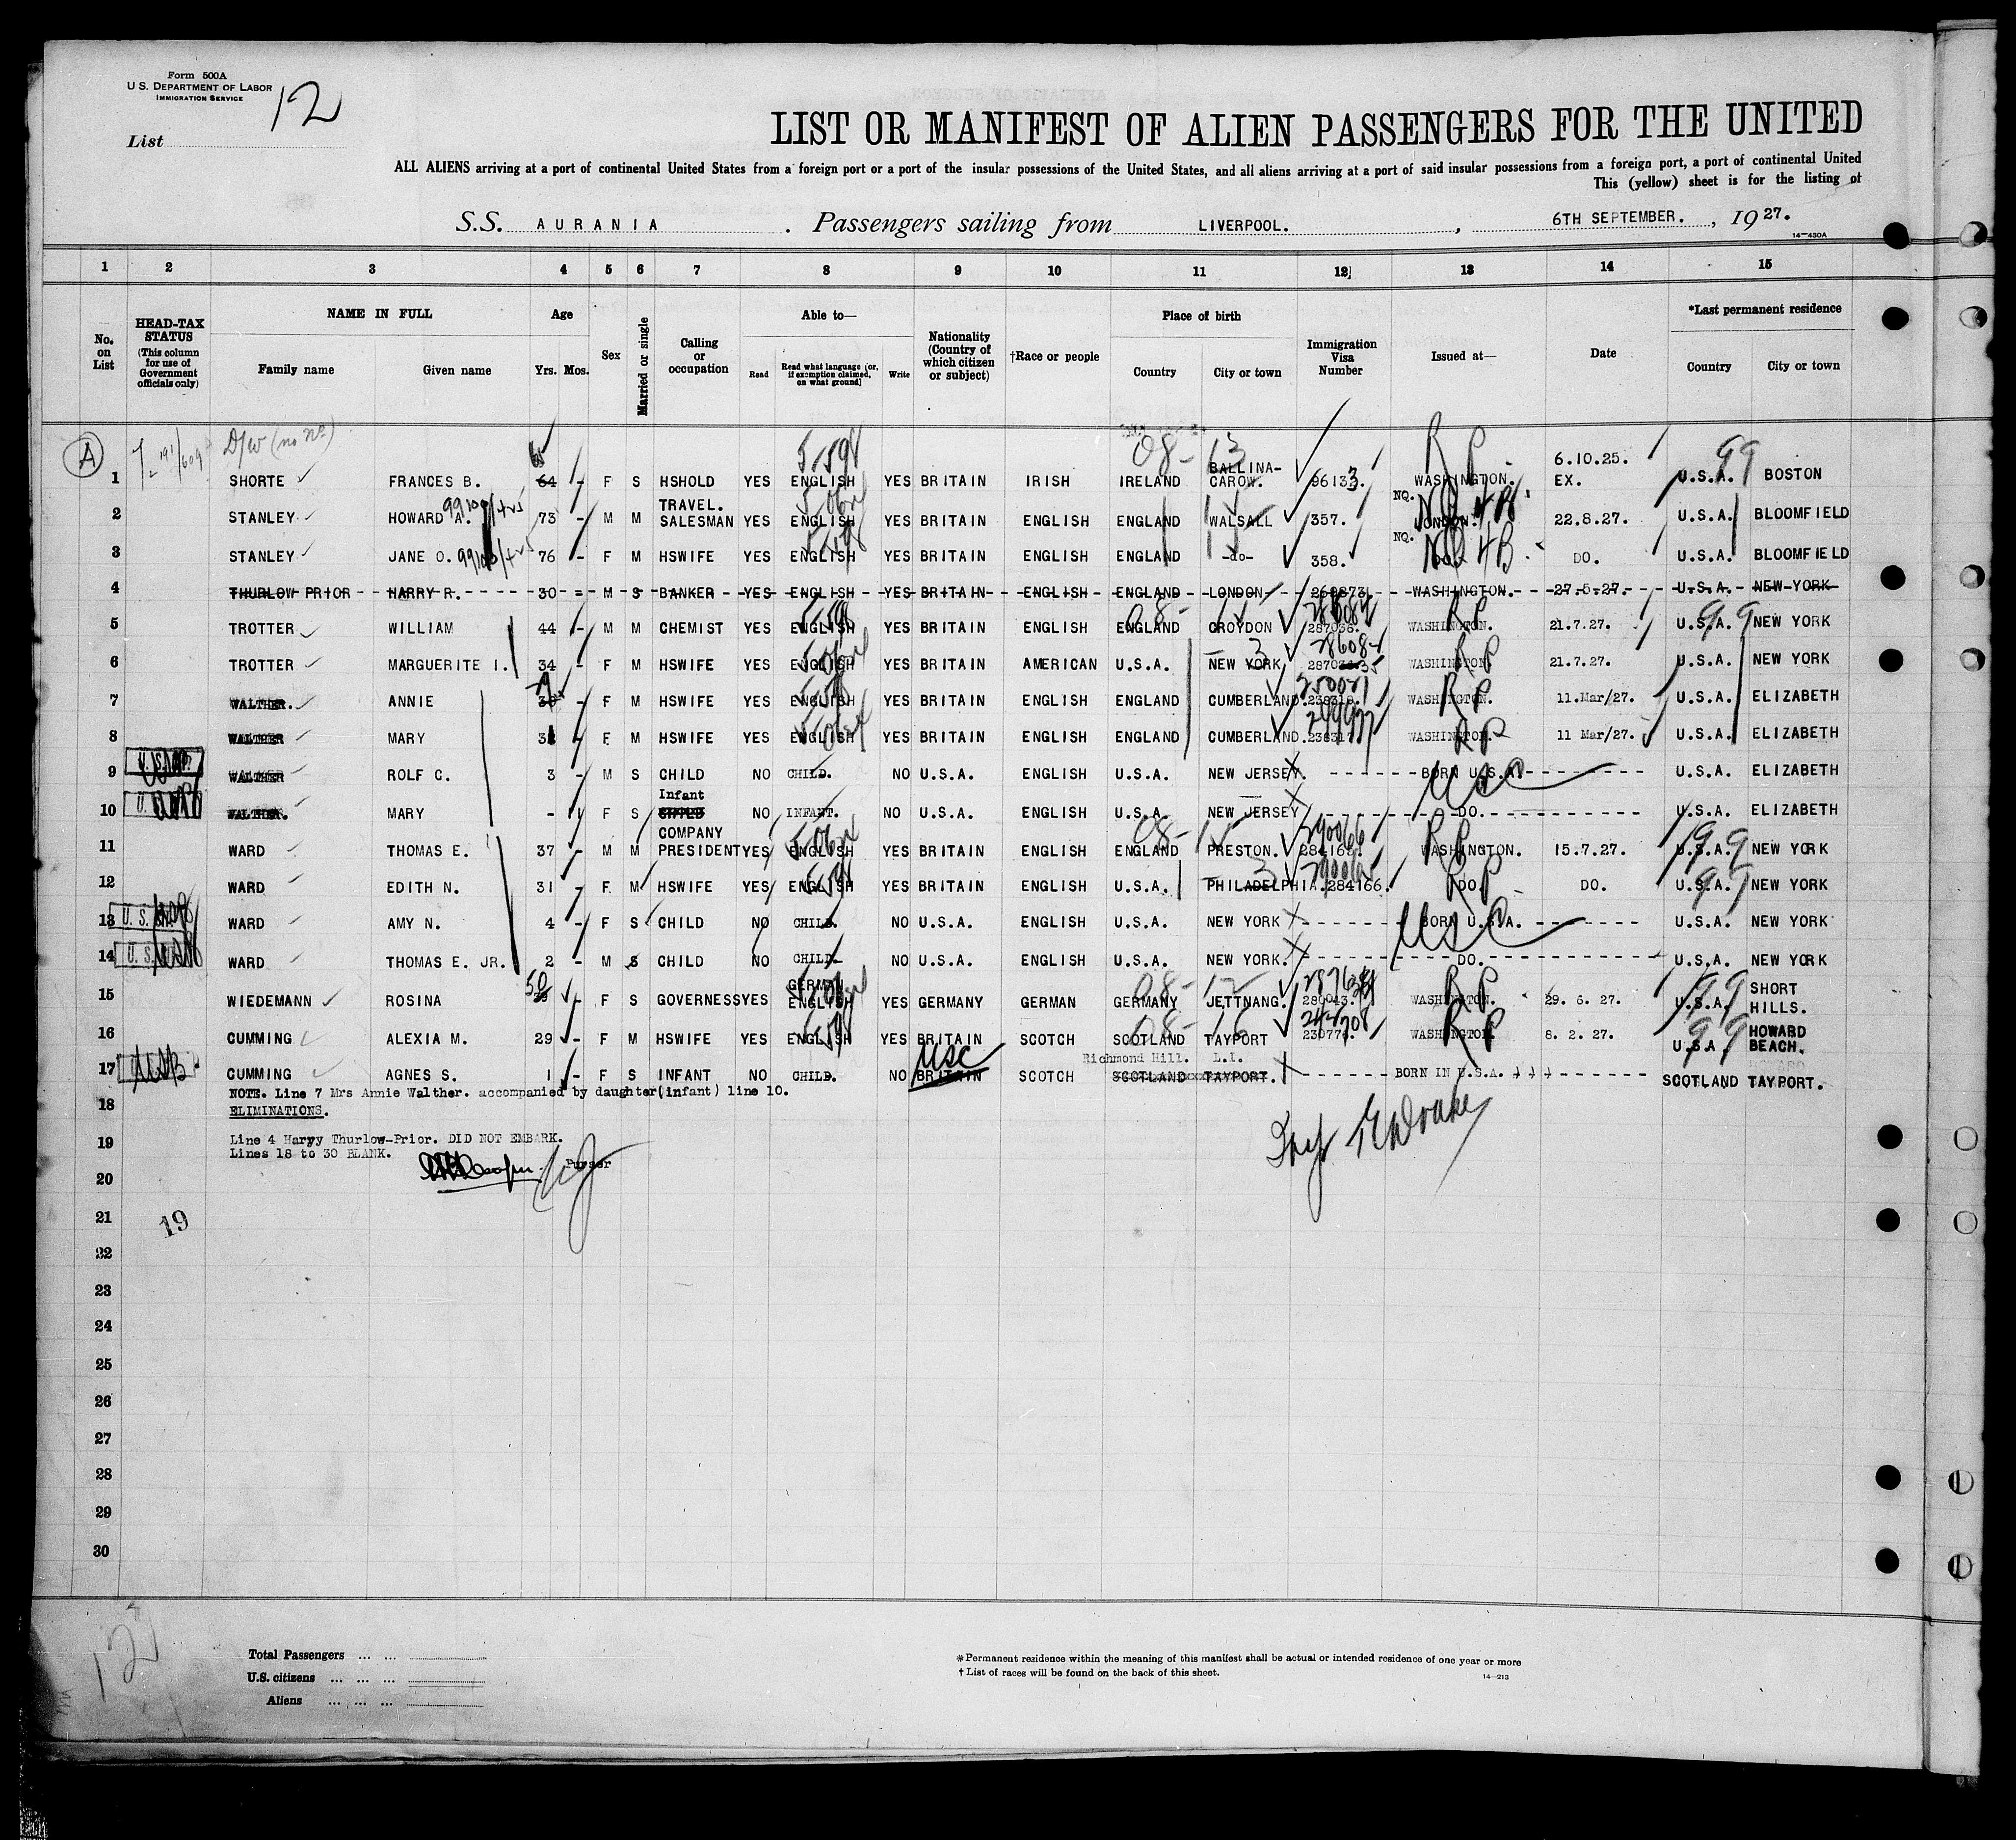 Form 500A
U. S. DEPARTMENT OF LABOR
IMMIGRATION SERVICE
12
List
LIST OR MANIFEST OF ALIEN PASSENGERS FOR THE UNITED
ALL ALIENS arriving at a port of continental United States from a foreign port or a port of the insular possessions of the United States, and all aliens arriving at a port of said insular possessions from a foreign port, a port of continental United
This (yellow) sheet is for the listing of
S.S. AURANIA. Passengers sailing from LIVERPOOL. , 6TH SEPTEMBER. , 1927.
14—430A
1 2 3 4 5 6 7 8 9 10 11 12 13 14 15
No. on List
HEAD-TAX STATUS (This column for use of Government officials only)
NAME IN FULL
Family name Given name
Age
Yrs. Mos.
Sex
Married or single
Calling or occupation
Able to—
Read Read what language (or, if exemption claimed, on what ground) Write
Nationality (Country of which citizen or subject)
†Race or people
Place of birth
Country City or town
Immigration Visa Number
Issued at—
Date
*Last permanent residence
Country City or town
A D/W (no no)
1 SHORTE FRANCES B. 64 - F S HSHOLD YES ENGLISH YES BRITAIN IRISH IRELAND BALLINA-CAROW. 96133. WASHINGTON. 6.10.25. EX. U.S.A. BOSTON
2 STANLEY HOWARD A. 73 - M M TRAVEL. SALESMAN YES ENGLISH YES BRITAIN ENGLISH ENGLAND WALSALL 357. NQ. LONDON. 22.8.27. U.S.A. BLOOMFIELD
3 STANLEY JANE O. 76 - F M HSWIFE YES ENGLISH YES BRITAIN ENGLISH ENGLAND -do- 358. NQ. DO. DO. U.S.A. BLOOMFIELD
4 THURLOW PRIOR HARRY R. 30 - M S BANKER YES ENGLISH YES BRITAIN ENGLISH ENGLAND LONDON WASHINGTON. 27.5.27. U.S.A. NEW YORK
5 TROTTER WILLIAM 44 - M M CHEMIST YES ENGLISH YES BRITAIN ENGLISH ENGLAND CROYDON 287036. WASHINGTON. RP 21.7.27. U.S.A. NEW YORK
6 TROTTER MARGUERITE I. 34 - F M HSWIFE YES ENGLISH YES BRITAIN AMERICAN U.S.A. NEW YORK WASHINGTON RP 21.7.27. U.S.A. NEW YORK
7 WALTHER. ANNIE - F M HSWIFE YES ENGLISH YES BRITAIN ENGLISH ENGLAND CUMBERLAND. WASHINGTON. RP 11.Mar/27. U.S.A. ELIZABETH
8 WALTHER MARY - F M HSWIFE YES ENGLISH YES BRITAIN ENGLISH ENGLAND CUMBERLAND. WASHINGTON. RP 11 Mar/27. U.S.A. ELIZABETH
9 WALTHER ROLF C. 3 - M S CHILD NO CHILD. NO U.S.A. ENGLISH U.S.A. NEW JERSEY. BORN U.S.A. USC U.S.A. ELIZABETH
10 WALTHER. MARY - 11 F S Infant NO INFANT. NO U.S.A. ENGLISH U.S.A. NEW JERSEY DO. U.S.A. ELIZABETH
11 WARD THOMAS E. 37 - M M COMPANY PRESIDENT YES ENGLISH YES BRITAIN ENGLISH ENGLAND PRESTON. WASHINGTON. RP 15.7.27. U.S.A. NEW YORK
12 WARD EDITH N. 31 - F M HSWIFE YES ENGLISH YES BRITAIN ENGLISH U.S.A. PHILADELPHIA. 284166. DO. RP DO. U.S.A. NEW YORK
13 WARD AMY N. 4 - F S CHILD NO CHILD. NO U.S.A. ENGLISH U.S.A. NEW YORK BORN U.S.A. USC U.S.A. NEW YORK
14 WARD THOMAS E. JR. 2 - M S CHILD NO CHILD. NO U.S.A. ENGLISH U.S.A. NEW YORK. DO. U.S.A. NEW YORK
15 WIEDEMANN ROSINA - F S GOVERNESS YES GERMAN ENGLISH YES GERMANY GERMAN GERMANY JETTNANG. WASHINGTON. RP 29. 6. 27. U.S.A. SHORT HILLS.
16 CUMMING ALEXIA M. 29 - F M HSWIFE YES ENGLISH YES BRITAIN SCOTCH SCOTLAND TAYPORT WASHINGTON. RP 8. 2. 27. U.S.A. HOWARD BEACH.
Richmond Hill. L.I.
17 CUMMING AGNES S. 1 - F S INFANT NO CHILD. NO USC BRITAIN SCOTCH SCOTLAND TAYPORT. BORN IN U.S.A. SCOTLAND TAYPORT.
NOTE. Line 7 Mrs Annie Walther. accompanied by daughter(infant) line 10.
18 ELIMINATIONS.
19 Line 4 Harry Thurlow-Prior. DID NOT EMBARK.
Lines 18 to 30 BLANK.
Purser
20
21
19
22
23
24
25
26
27
28
29
30
12
Total Passengers ... ...
U.S. citizens ... ... ...
Aliens ... ... ...
*Permanent residence within the meaning of this manifest shall be actual or intended residence of one year or more
† List of races will be found on the back of this sheet.
14—213